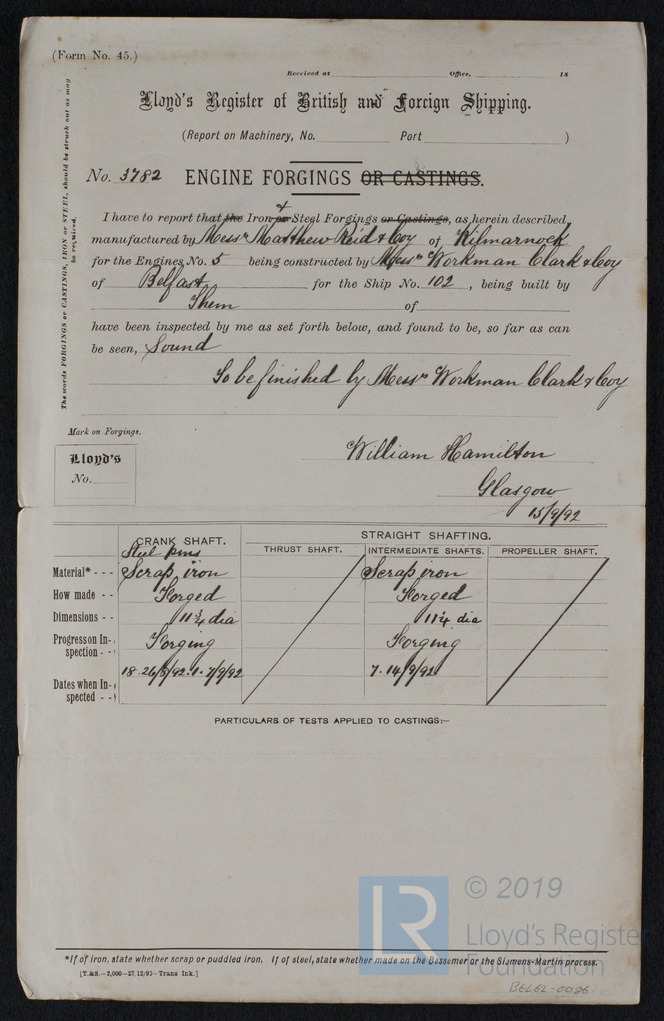 (Form No. 45.)
Received at Office, 18
Lloyd's Register of British and Foreign Shipping.
(Report on Machinery, No. Port )
No. 3782 ENGINE FORGINGS OR CASTINGS.
The words FORGINGS or CASTINGS, IRON or STEEL, should be struck out as may be required.
I have to report that the Iron or + Steel Forgings or Castings, as herein described,
manufactured by Messrs Matthew Reid & Coy of Kilmarnock
for the Engines No. 5 being constructed by Messrs Workman Clark & Coy
of Belfast for the Ship No. 102, being built by
Them of
have been inspected by me as set forth below, and found to be, so far as can
be seen, Sound
To be finished by Messrs Workman Clark & Coy
Mark on Forgings.
Lloyd's
No.
William Hamilton
Glasgow
15/9/92
CRANK SHAFT. STRAIGHT SHAFTING.
THRUST SHAFT. INTERMEDIATE SHAFTS. PROPELLER SHAFT.
Steel pins
Material* - - - Scrap iron Scrap iron
How made - - Forged Forged
Dimensions - - 11 3/4 dia 11 1/4 dia
Progress on In-spection - - Forging Forging
Dates when In-spected - - 18. 26/8/92. 1. 7/9/92 7. 14/9/92
PARTICULARS OF TESTS APPLIED TO CASTINGS:—
*If of iron, state whether scrap or puddled iron. If of steel, state whether made on the Bessemer or the Siemens-Martin process.
[T.&S.—3,000—27/12/90—Trans Ink.]
LR © 2019
Lloyd's Register
Foundation
BEL62-0026